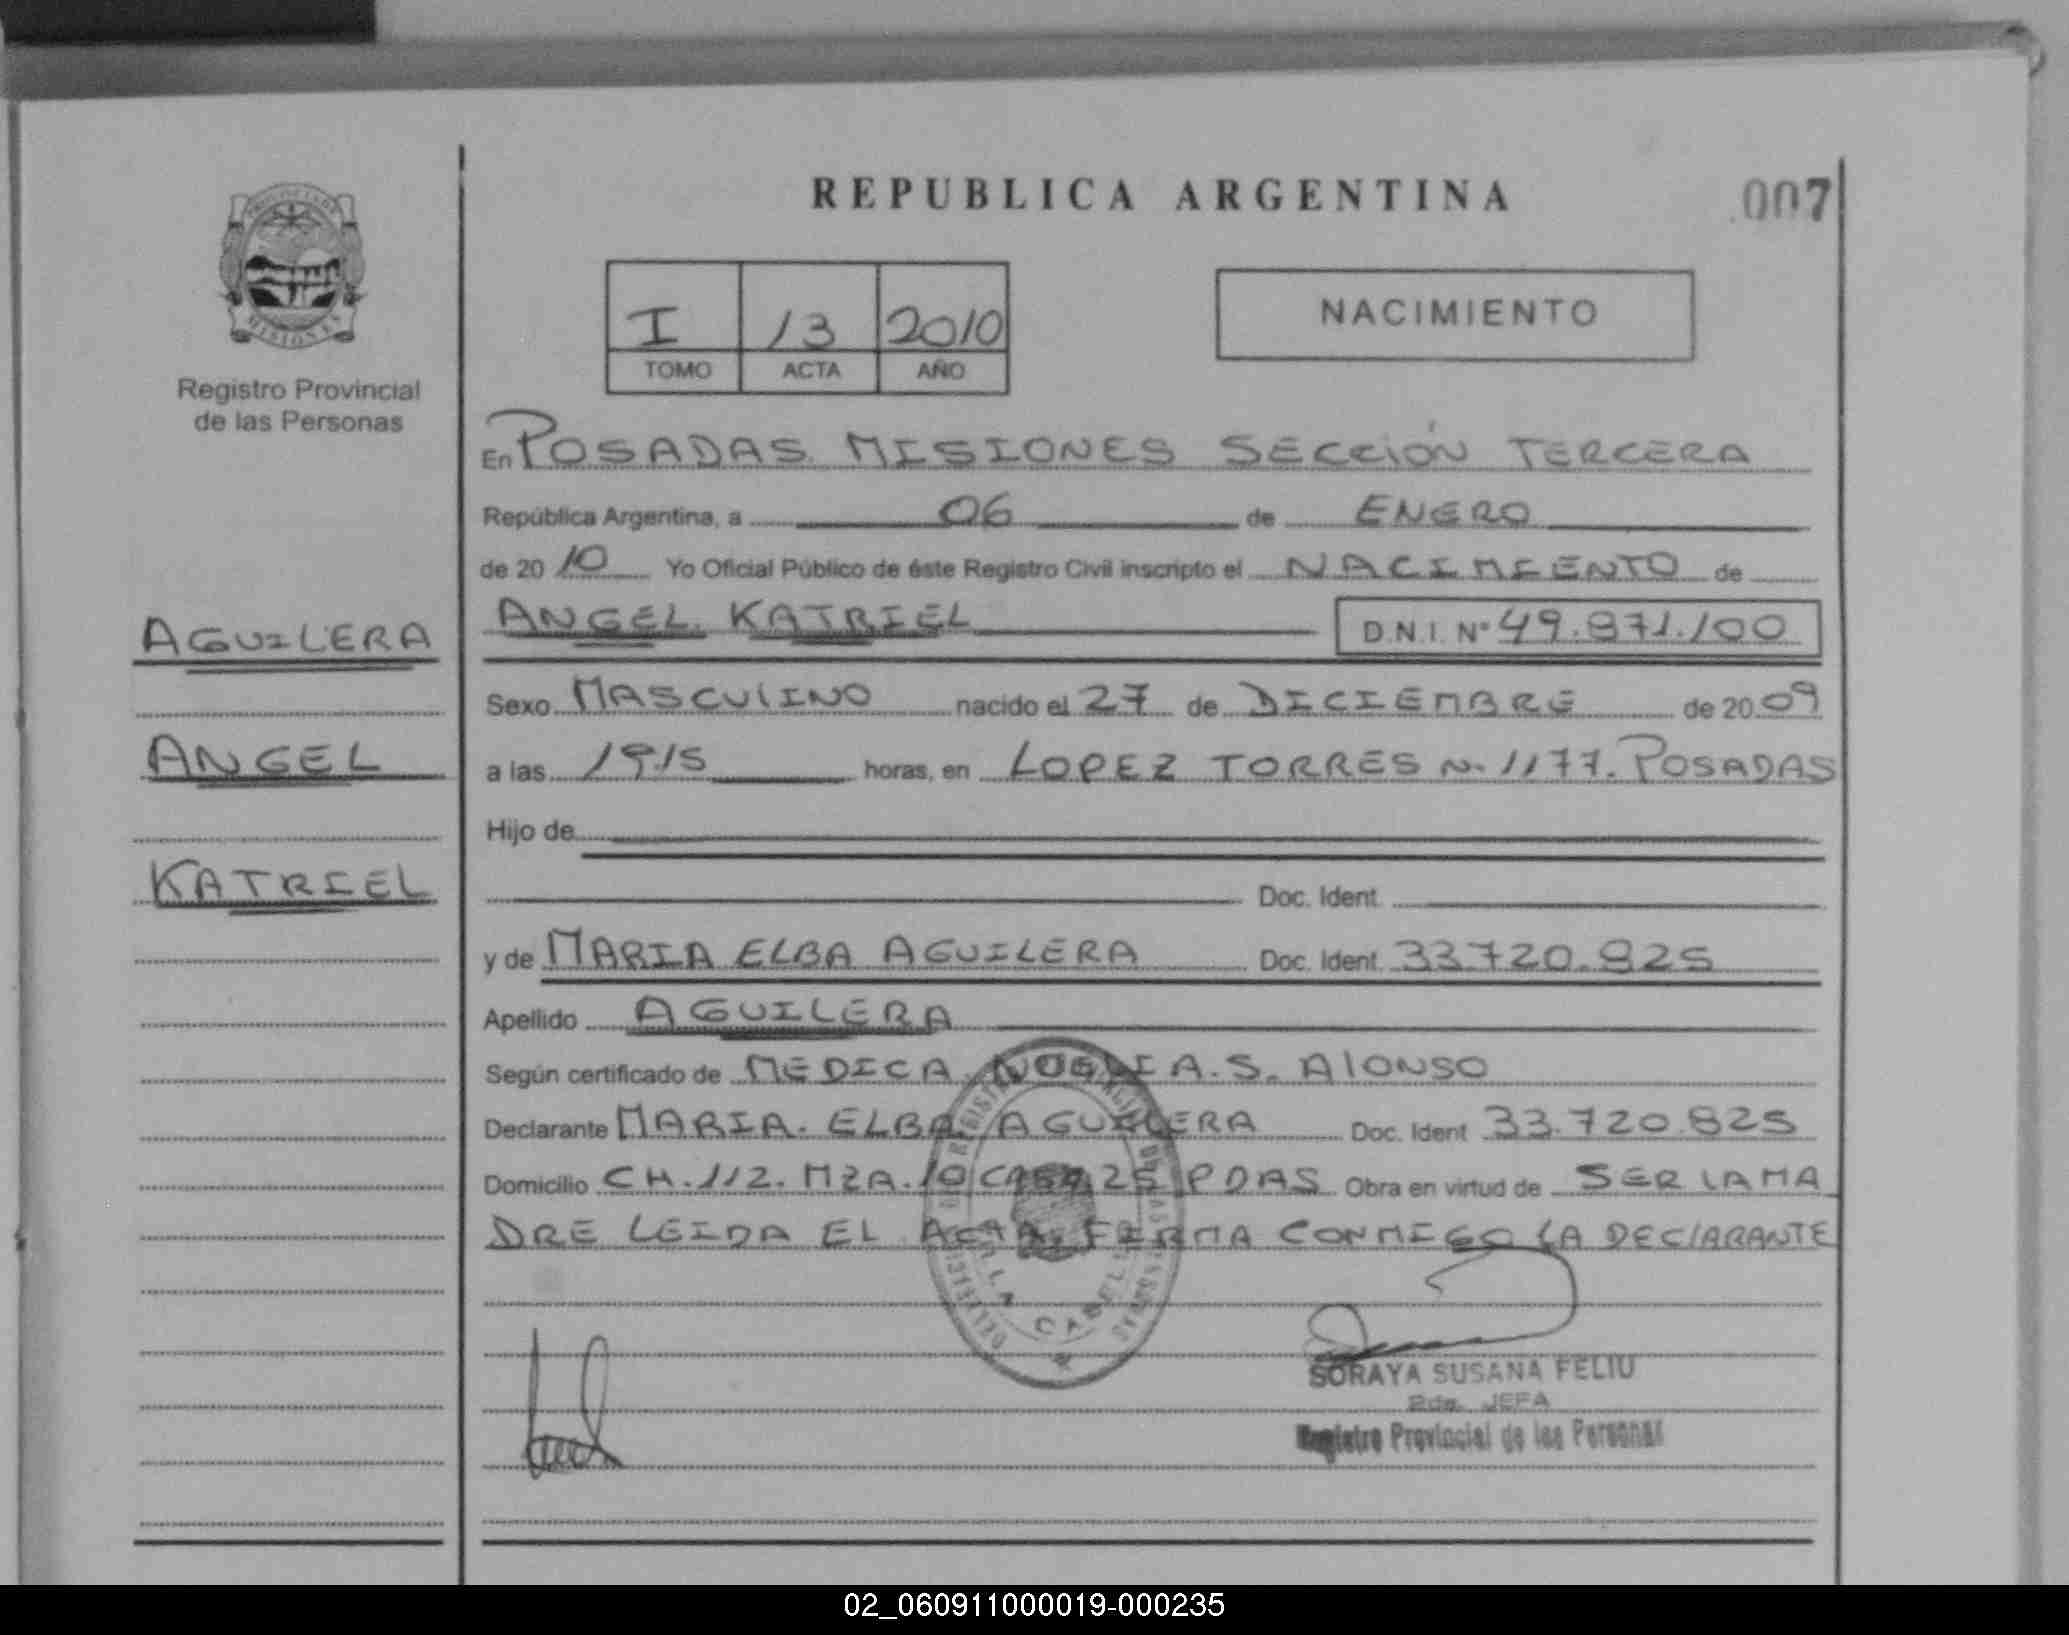 REPUBLICA ARGENTINA
007
PROVINCIA DE
MISIONES
Registro Provincial
de las Personas
I 13 2010
TOMO ACTA AÑO
NACIMIENTO
En POSADAS. MISIONES SECCIÓN TERCERA
República Argentina, a 06 de ENERO
de 20 10 Yo Oficial Público de éste Registro Civil inscripto el NACIMIENTO de
AGUILERA
ANGEL
KATRIEL
ANGEL. KATRIEL D.N.I. Nº 49.871.100
Sexo MASCULINO nacido el 27 de DICIEMBRE de 20 09
a las 19.15 horas, en LOPEZ TORRES N. 1177. POSADAS
Hijo de
Doc. Ident.
y de MARIA ELBA AGUILERA Doc. Ident. 33.720.825
Apellido AGUILERA
Según certificado de MEDICA S. ALONSO
Declarante MARIA. ELBA. AGUILERA Doc. Ident. 33.720.825
Domicilio CH.112. MZA.10 CASA 25 PDAS Obra en virtud de SER LA MA
DRE LEIDA EL ACTA, FIRMA CONMIGO LA DECLARANTE
SORAYA SUSANA FELIU
2da. JEFA
Registro Provincial de las Personas
02_060911000019-000235